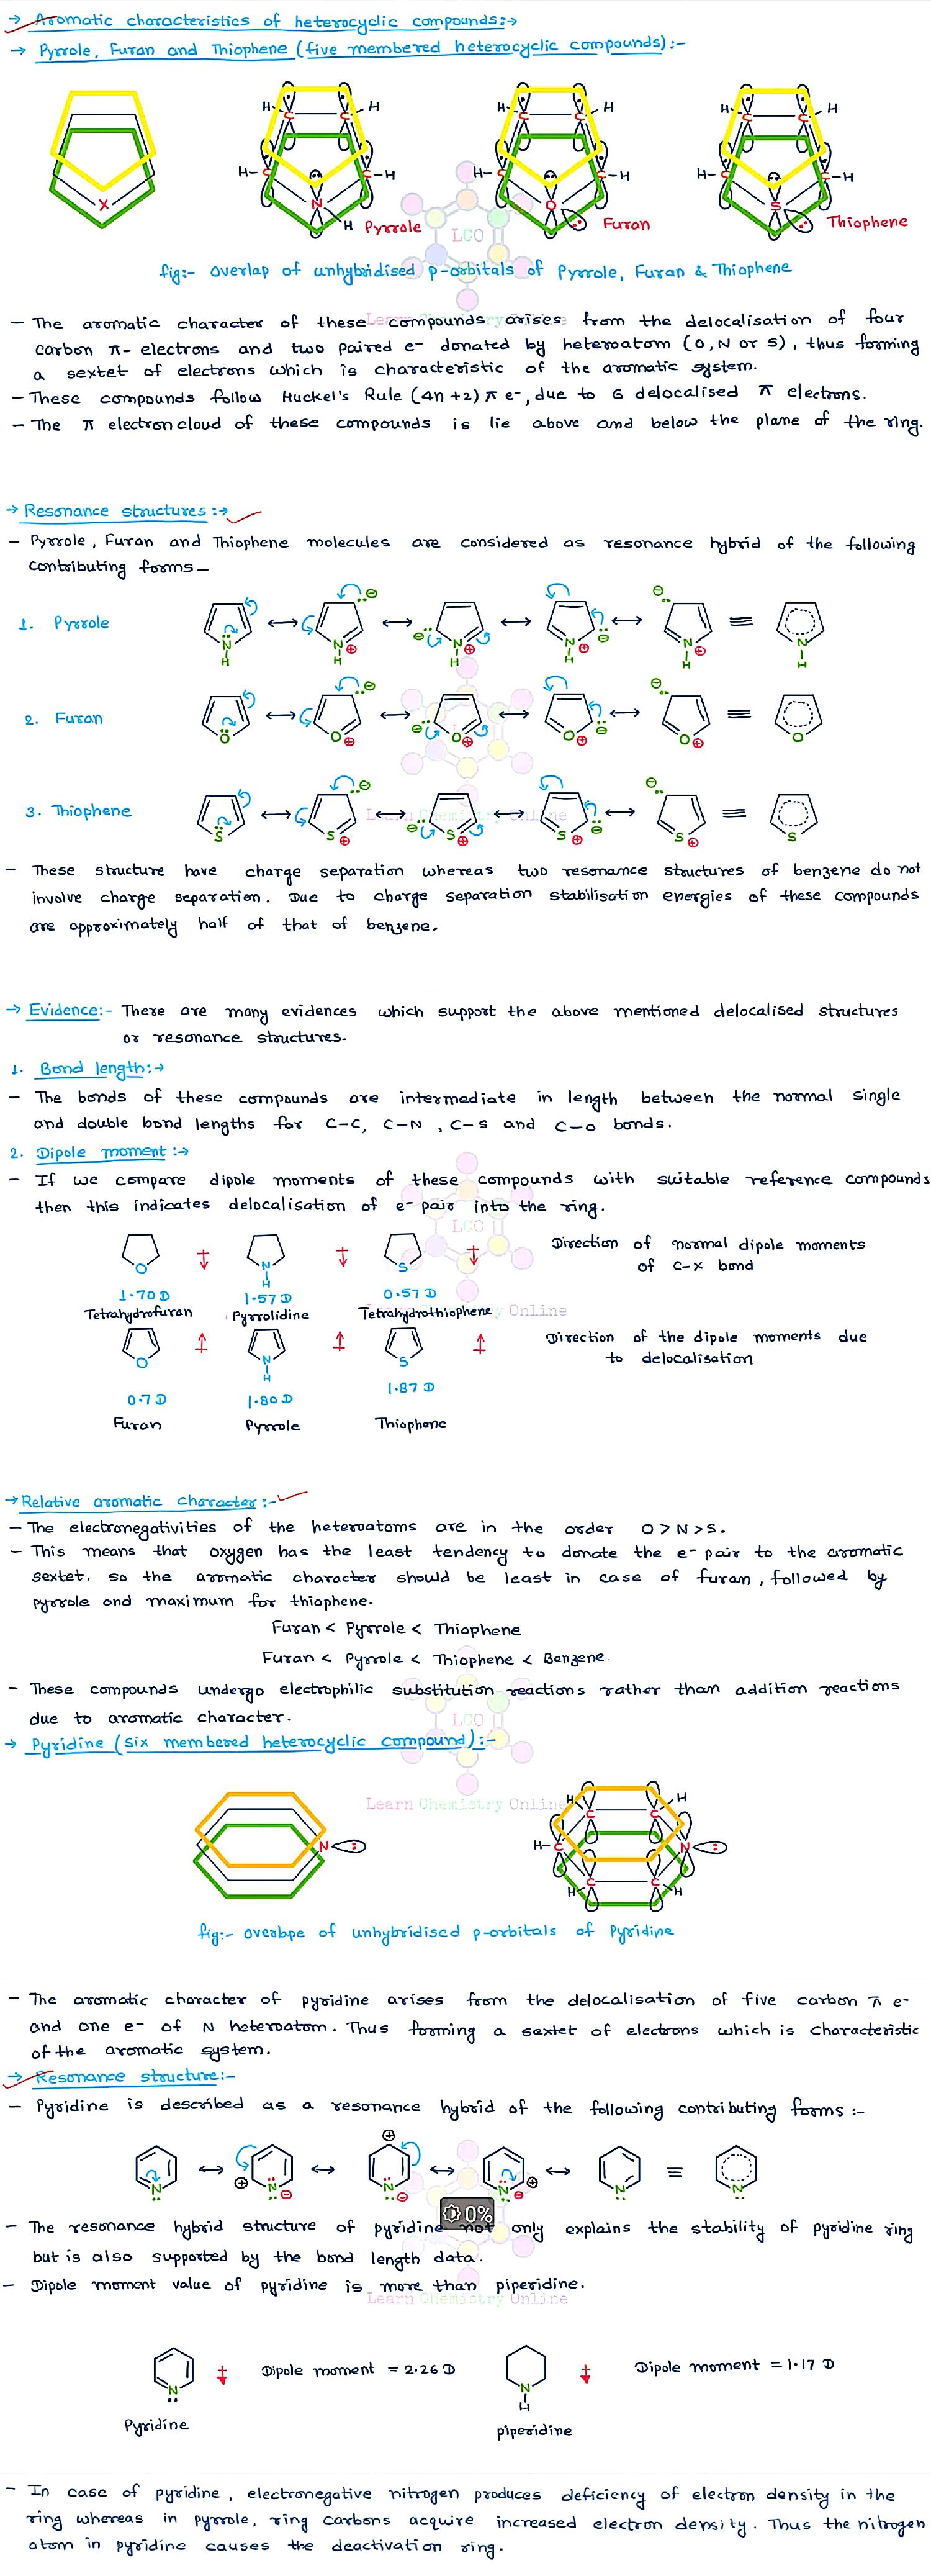 → Aromatic characteristics of heterocyclic compounds:→
→ Pyrrole, Furan and Thiophene (five membered heterocyclic compounds):-
X
H C C H H C C H N H Pyrrole
H C C H H C C H O Furan
H C C H H C C H S Thiophene
LCO
fig:- overlap of unhybridised p-orbitals of Pyrrole, Furan & Thiophene
Learn Chemistry Online
- The aromatic character of these compounds arises from the delocalisation of four
carbon π- electrons and two paired e- donated by heteroatom (O, N or S), thus forming
a sextet of electrons which is characteristic of the aromatic system.
- These compounds follow Huckel's Rule (4n+2) π e-, due to 6 delocalised π electrons.
- The π electron cloud of these compounds is lie above and below the plane of the ring.
→ Resonance structures:→
- Pyrrole, Furan and Thiophene molecules are considered as resonance hybrid of the following
contributing forms-
1. Pyrrole
N H ↔ N H ⊕ ⊖ ↔ N H ⊕ ⊖ ↔ N H ⊕ ⊖ ↔ N H ⊕ ⊖ ≡ N H
2. Furan
O ↔ O ⊕ ⊖ ↔ O ⊕ ⊖ ↔ O ⊕ ⊖ ↔ O ⊕ ⊖ ≡ O
3. Thiophene
S ↔ S ⊕ ⊖ ↔ S ⊕ ⊖ ↔ S ⊕ ⊖ ↔ S ⊕ ⊖ ≡ S
Learn Chemistry Online
- These structure have charge separation whereas two resonance structures of benzene do not
involve charge separation. Due to charge separation stabilisation energies of these compounds
are approximately half of that of benzene.
→ Evidence:- There are many evidences which support the above mentioned delocalised structures
or resonance structures.
1. Bond length:→
- The bonds of these compounds are intermediate in length between the normal single
and double bond lengths for C-C, C-N, C-S and C-O bonds.
2. Dipole moment:→
- If we compare dipole moments of these compounds with suitable reference compounds
then this indicates delocalisation of e- pair into the ring.
LCO
O N H S
Direction of normal dipole moments
of C-X bond
1.70 D 1.57 D 0.57 D
Tetrahydrofuran Pyrrolidine Tetrahydrothiophene
Learn Chemistry Online
O N H S
Direction of the dipole moments due
to delocalisation
0.7 D 1.80 D 1.87 D
Furan Pyrrole Thiophene
→ Relative aromatic character:-
- The electronegativities of the heteroatoms are in the order O > N > S.
- This means that oxygen has the least tendency to donate the e- pair to the aromatic
sextet. so the aromatic character should be least in case of furan, followed by
pyrrole and maximum for thiophene.
Furan < Pyrrole < Thiophene
Furan < Pyrrole < Thiophene < Benzene.
- These compounds undergo electrophilic substitution reactions rather than addition reactions
due to aromatic character.
LCO
→ Pyridine (six membered heterocyclic compound):-
Learn Chemistry Online
N
H C C H H C N C C H H
fig:- overlape of unhybridised p-orbitals of Pyridine
- The aromatic character of pyridine arises from the delocalisation of five carbon π e-
and one e- of N heteroatom. Thus forming a sextet of electrons which is characteristic
of the aromatic system.
→ Resonance structure:-
- Pyridine is described as a resonance hybrid of the following contributing forms:-
N ↔ ⊕ N ⊖ ↔ ⊕ N ⊖ ↔ N ⊖ ⊕ ↔ N ≡ N
0%
- The resonance hybrid structure of pyridine not only explains the stability of pyridine ring
but is also supported by the bond length data.
- Dipole moment value of pyridine is more than piperidine.
Learn Chemistry Online
N Dipole moment = 2.26 D N H Dipole moment = 1.17 D
Pyridine piperidine
- In case of pyridine, electronegative nitrogen produces deficiency of electron density in the
ring whereas in pyrrole, ring carbons acquire increased electron density. Thus the nitrogen
atom in pyridine causes the deactivation ring.